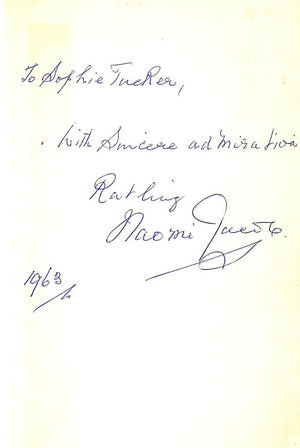 To Sophie Tucker,
. With Sincere admiration
Naomi Jacob.
1963